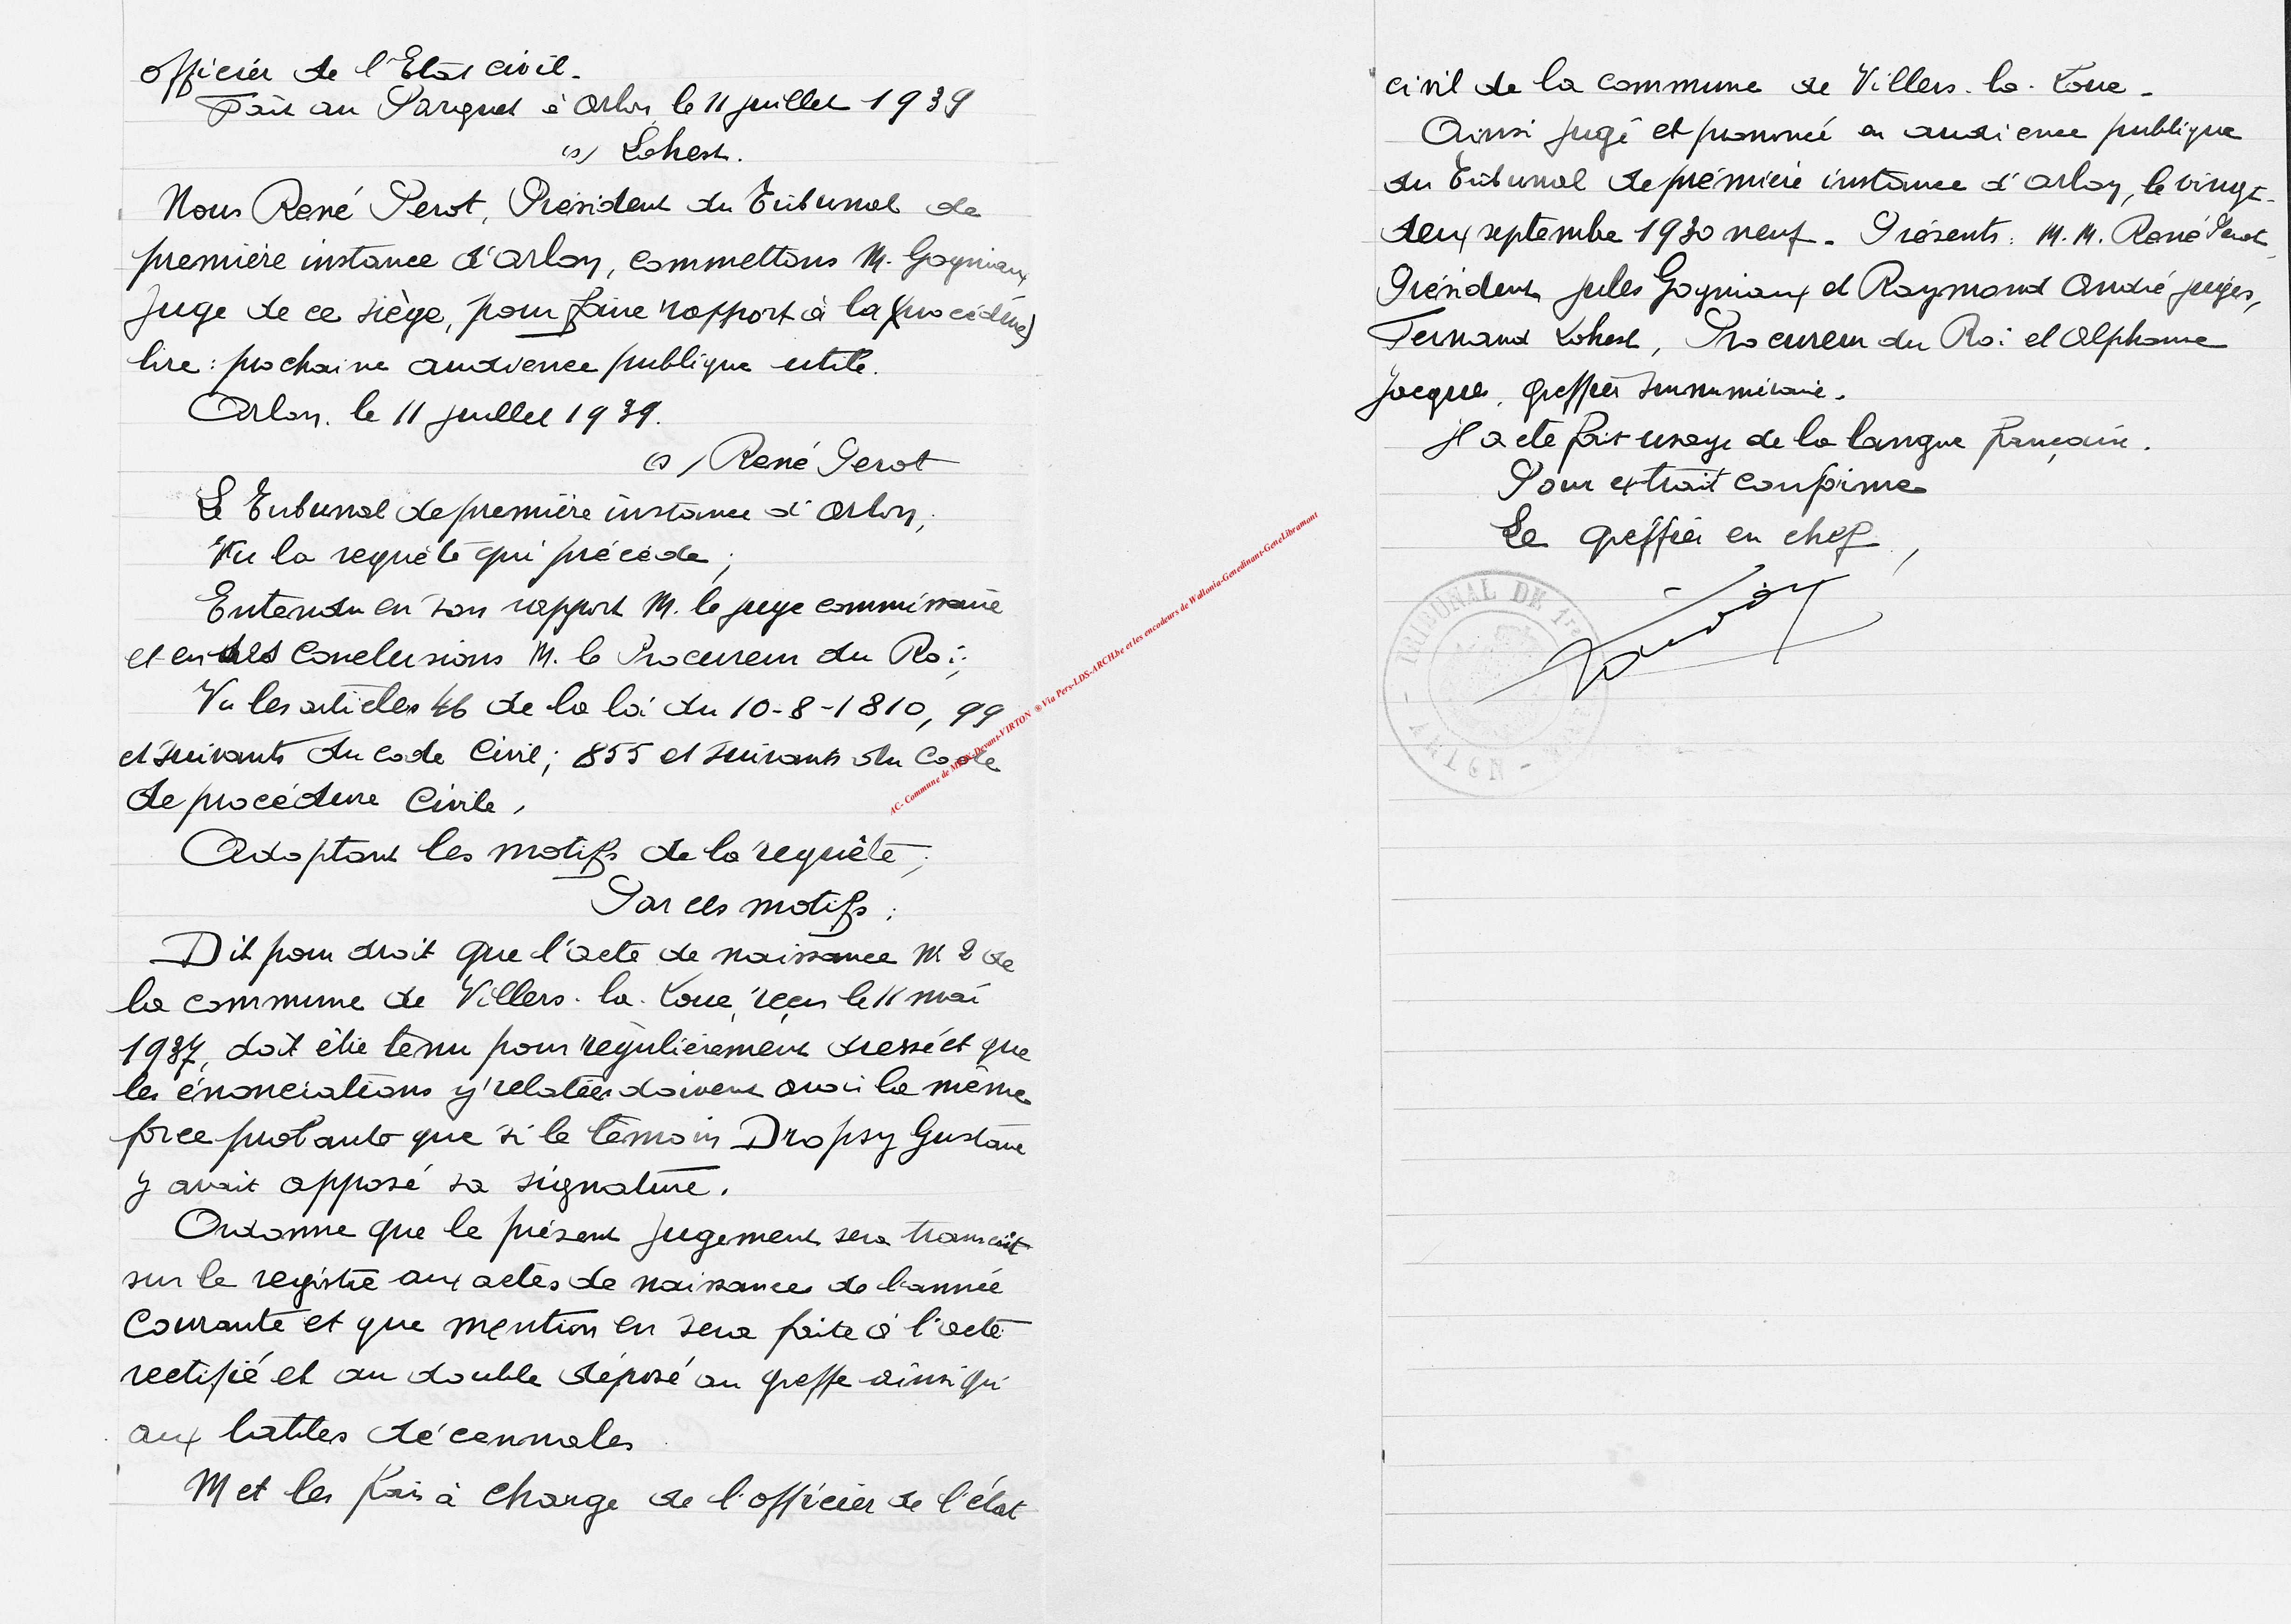 officier de l'Etat civil.
Fait au Parquet à Arlon, le 11 juillet 1939
(s) Lohest.
Nous René Perot, Président du Tribunal de
première instance d'Arlon, commettons M. Goyniaux
Juge de ce siège, pour faire rapport à la (procédure)
lire : prochaine audience publique utile.
Arlon, le 11 juillet 1939.
(s) René Perot
Le Tribunal de première instance d'Arlon,
Vu la requête qui précède ;
Entendu en son rapport M. le juge commissaire
et en ses conclusions M. le Procureur du Roi ;
Vu les articles 46 de la loi du 10-8-1810, 99
et suivants du code Civil ; 855 et suivants du Code
de procédure Civile,
Adoptant les motifs de la requête ;
Par ces motifs :
Dit pour droit que l'acte de naissance N° 2 de
la commune de Villers-la-Loue, reçu le 11 mai
1937, doit être tenu pour régulièrement dressé et que
les énonciations y relatées doivent avoir la même
force probante que si le témoin Dropsy Gustave
y avait apposé sa signature.
Ordonne que le présent jugement sera transcrit
sur le registre aux actes de naissances de l'année
Courante et que mention en sera faite à l'acte
rectifié et au double déposé au greffe ainsi qu'
aux tables décennales
Met les frais à charge de l'officier de l'état
AC- Commune de Devant-VIRTON ® Via Pers-LDS-ARCH.be et les encodeurs de Wallonia-Genedinant-GeneLibramont
civil de la commune de Villers-la-Loue.
Ainsi jugé et prononcé en audience publique
du Tribunal de première instance d'Arlon, le vingt-
deux septembre 1930 neuf. Présents : M.M. René Perot
Président, Jules Goyniaux et Raymond André juges,
Fernand Lohest, Procureur du Roi et Alphonse
Jacques, greffier surnuméraire.
Il a été fait usage de la langue française.
Pour extrait conforme
Le greffier en chef,
TRIBUNAL DE 1re